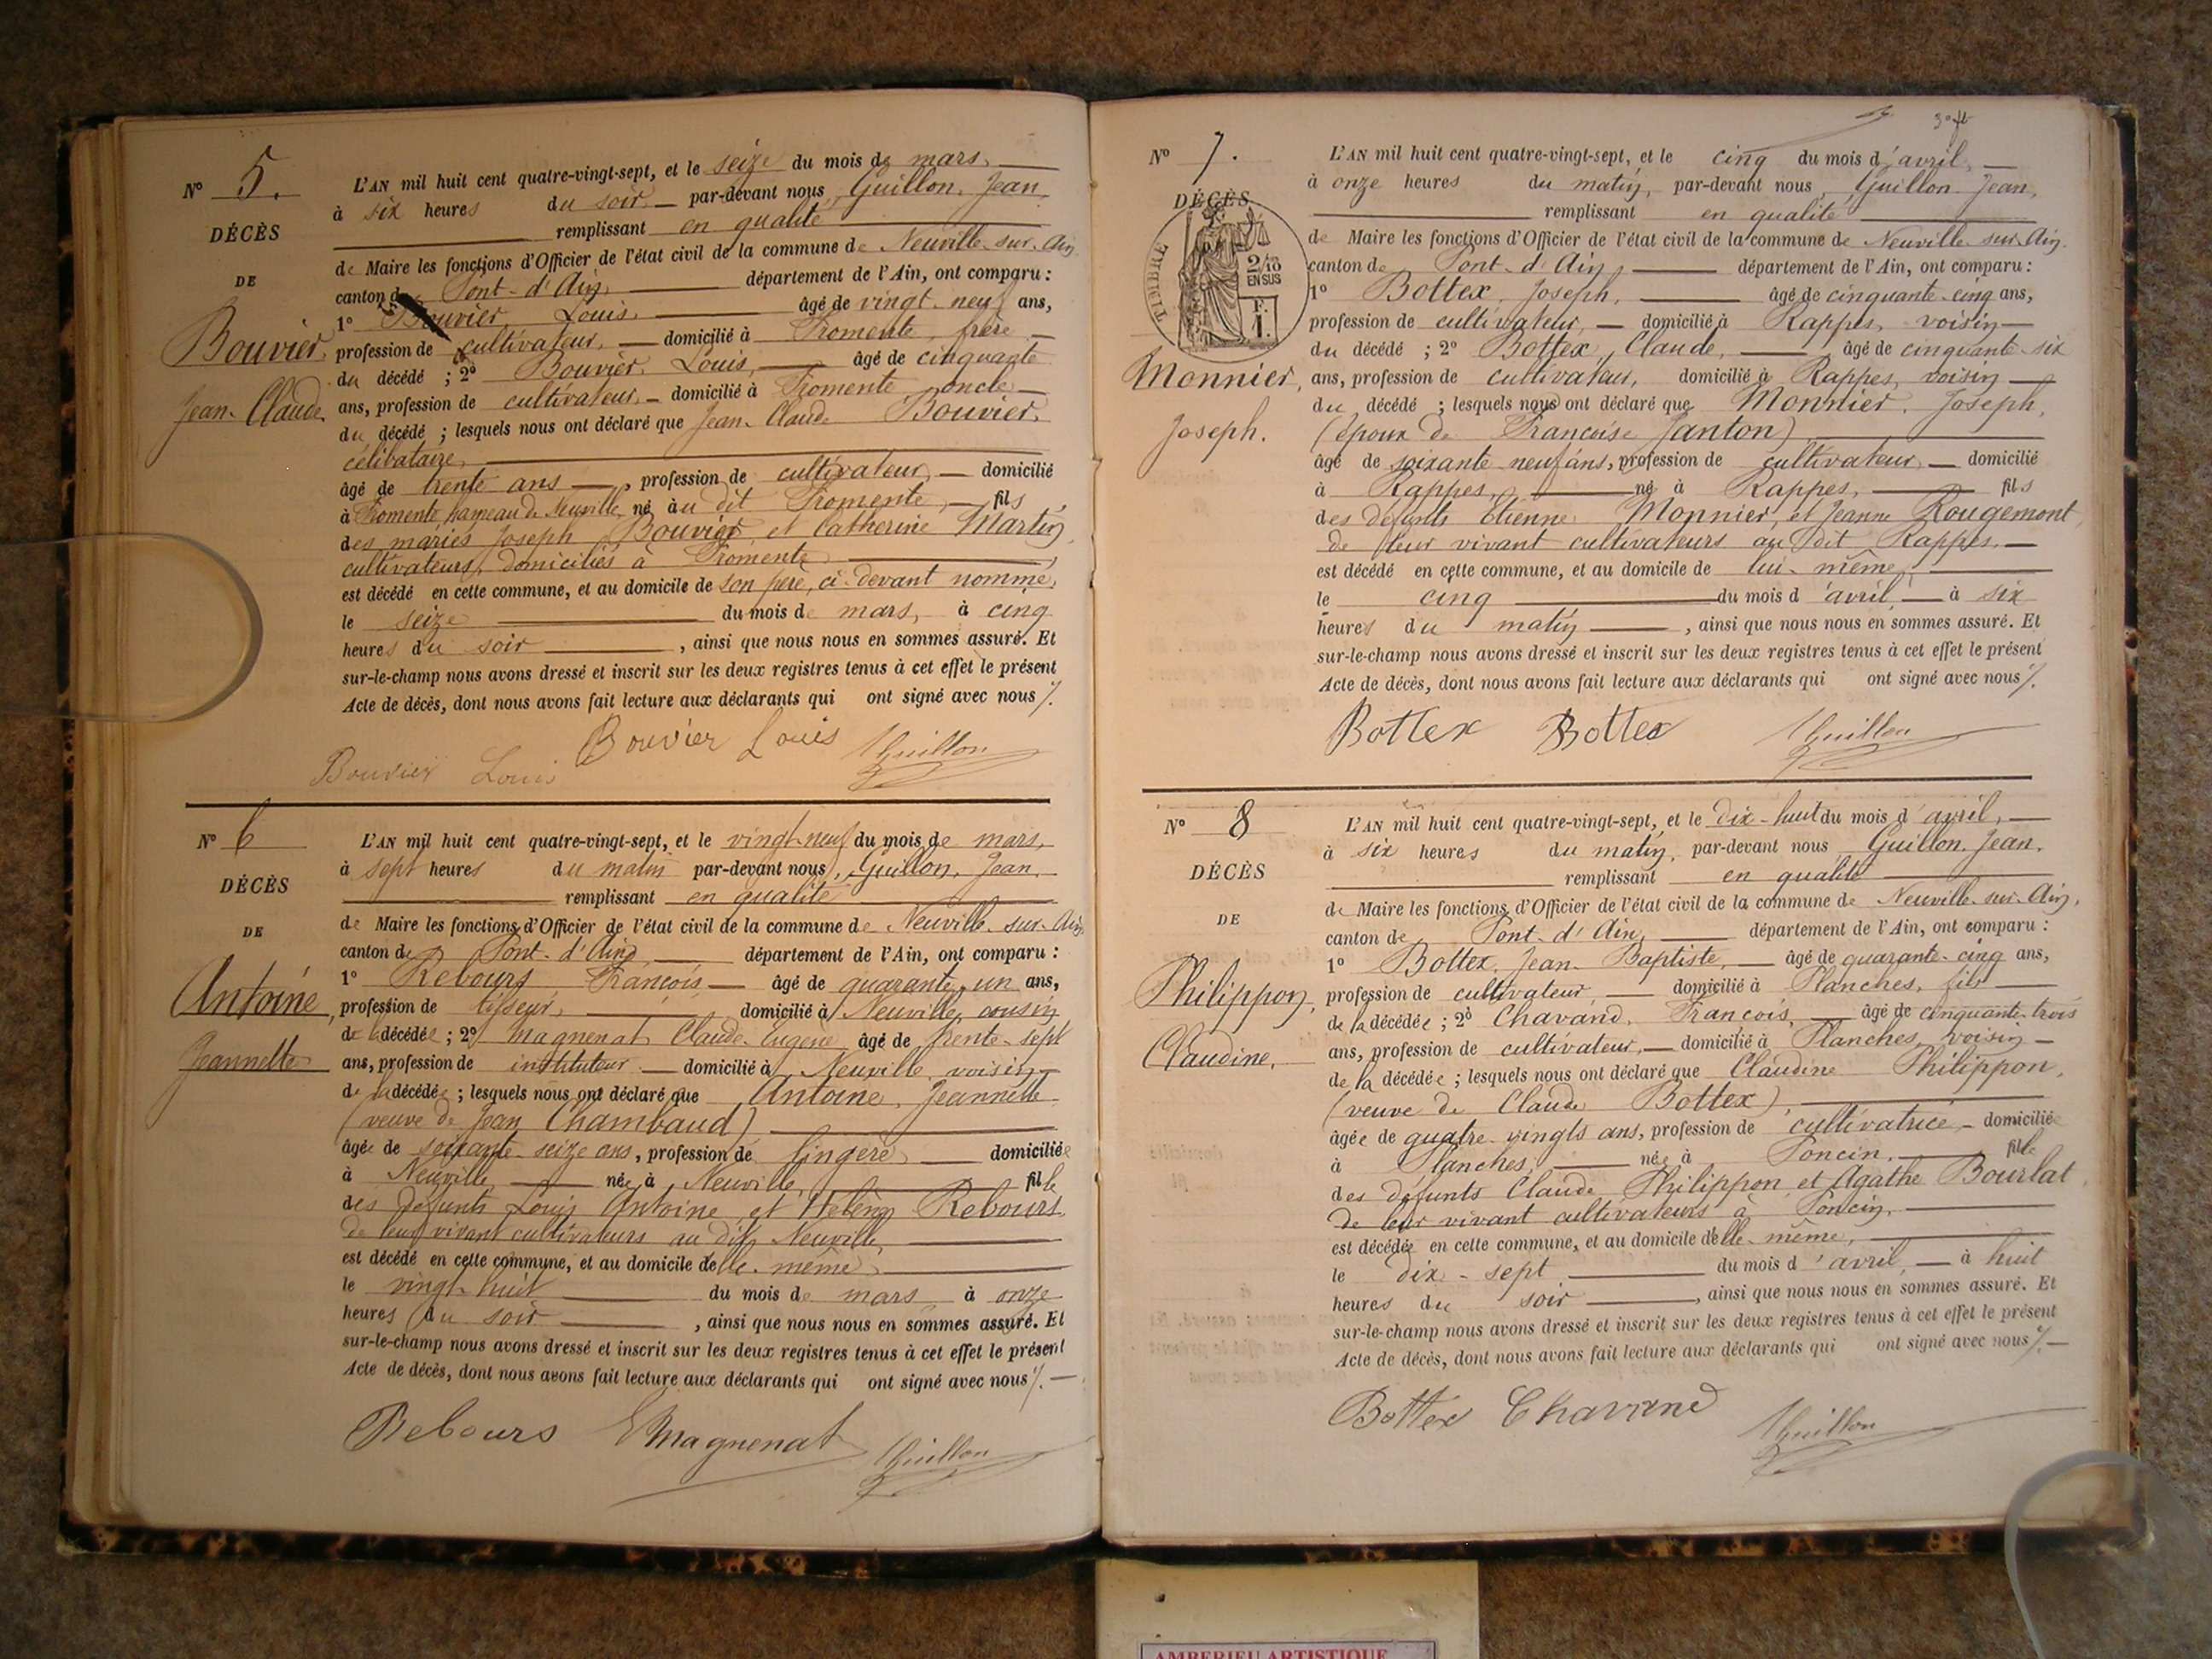 N° 5.
DÉCÈS
DE
Bouvier,
Jean-Claude
L'AN mil huit cent quatre-vingt-sept, et le seize du mois de mars,
à six heures du soir par-devant nous, Guillon, Jean,
remplissant en qualité
de Maire les fonctions d'Officier de l'état civil de la commune de Neuville-sur-Ain,
canton de Pont-d'Ain, département de l'Ain, ont comparu :
1° Bouvier Louis, âgé de vingt-neuf ans,
profession de cultivateur, domicilié à Fromente, frère
du décédé ; 2° Bouvier, Louis, âgé de cinquante
ans, profession de cultivateur, domicilié à Fromente oncle
du décédé ; lesquels nous ont déclaré que Jean-Claude Bouvier,
célibataire,
âgé de trente ans, profession de cultivateur, domicilié
à Fromente, hameau de Neuville, né àu dit Fromente, fils
des mariés Joseph Bouvier et Catherine Martin,
cultivateurs, domiciliés à Fromente
est décédé en cette commune, et au domicile de son père, ci-devant nommé,
le seize du mois de mars, à cinq
heures du soir, ainsi que nous nous en sommes assuré. Et
sur-le-champ nous avons dressé et inscrit sur les deux registres tenus à cet effet le présent
Acte de décès, dont nous avons fait lecture aux déclarants qui ont signé avec nous ./.
Bouvier Louis Guillon
Bouvier Louis
N° 6
DÉCÈS
DE
Antoine,
Jeannette
L'AN mil huit cent quatre-vingt-sept, et le vingt-neuf du mois de mars,
à sept heures du matin par-devant nous, Guillon, Jean,
remplissant en qualité
de Maire les fonctions d'Officier de l'état civil de la commune de Neuville-sur-Ain,
canton de Pont-d'Ain, département de l'Ain, ont comparu :
1° Rebours, François, âgé de quarante-un ans,
profession de tisseur, domicilié à Neuville, cousin
de la décédée ; 2° Magnenat Claude-Eugène âgé de trente-sept
ans, profession de instituteur domicilié à Neuville, voisin
de la décédée ; lesquels nous ont déclaré que Antoine, Jeannette
(veuve de Jean Chambaud)
âgée de soixante-seize ans, profession de lingère, domiciliée
à Neuville, née à Neuville, fille
des défunts Louis Antoine et Hélène Rebours,
de leur vivant cultivateurs au dit Neuville,
est décédé en cette commune, et au domicile d'elle-même,
le vingt-huit du mois de mars à onze
heures du soir, ainsi que nous nous en sommes assuré. Et
sur-le-champ nous avons dressé et inscrit sur les deux registres tenus à cet effet le présent
Acte de décès, dont nous avons fait lecture aux déclarants qui ont signé avec nous ./.
Rebours E Magnenat Guillon
N° 7.
DÉCÈS
TIMBRE
2/10
EN SUS
F.
1.
Monnier,
Joseph.
L'AN mil huit cent quatre-vingt-sept, et le cinq du mois d'avril,
à onze heures du matin, par-devant nous, Guillon Jean,
remplissant en qualité
de Maire les fonctions d'Officier de l'état civil de la commune de Neuville-sur-Ain.
canton de Pont-d'Ain, département de l'Ain, ont comparu :
1° Bottex, Joseph, âgé de cinquante-cinq ans,
profession de cultivateur, domicilié à Rappes, voisin
du décédé ; 2° Bottex, Claude, âgé de cinquante-six
ans, profession de cultivateur, domicilié à Rappes, voisin
du décédé ; lesquels nous ont déclaré que Monnier, Joseph,
(époux de Françoise Janton)
âgé de soixante-neuf ans, profession de cultivateur, domicilié
à Rappes, né à Rappes, fils
des défunts Etienne Monnier, et Jeanne Rougemont,
de leur vivant cultivateurs au dit Rappes.
est décédé en cette commune, et au domicile de lui-même,
le cinq du mois d'avril à six
heures du matin, ainsi que nous nous en sommes assuré. Et
sur-le-champ nous avons dressé et inscrit sur les deux registres tenus à cet effet le présent
Acte de décès, dont nous avons fait lecture aux déclarants qui ont signé avec nous ./.
Bottex Bottex Guillon
N° 8
DÉCÈS
DE
Philippon,
Claudine.
L'AN mil huit cent quatre-vingt-sept, et le dix-huit du mois d'avril,
à six heures du matin, par-devant nous Guillon, Jean,
remplissant en qualité
de Maire les fonctions d'Officier de l'état civil de la commune de Neuville-sur-Ain,
canton de Pont-d'Ain, département de l'Ain, ont comparu :
1° Bottex, Jean-Baptiste, âgé de quarante-cinq ans,
profession de cultivateur, domicilié à Planches, fils
de la décédée ; 2° Chavand, François, âgé de cinquante-trois
ans, profession de cultivateur, domicilié à Planches, voisin
de la décédée ; lesquels nous ont déclaré que Claudine Philippon,
(veuve de Claude Bottex),
âgée de quatre-vingts ans, profession de cultivatrice, domiciliée
à Planches, née à Poncin, fille
des défunts Claude Philippon et Agathe Bourlat,
de leur vivant cultivateurs à Poncin,
est décédée en cette commune, et au domicile d'elle-même,
le dix-sept du mois d'avril, à huit
heures du soir, ainsi que nous nous en sommes assuré. Et
sur-le-champ nous avons dressé et inscrit sur les deux registres tenus à cet effet le présent
Acte de décès, dont nous avons fait lecture aux déclarants qui ont signé avec nous ./.
Bottex Chavand Guillon
AMBERIEU ARTISTIQUE